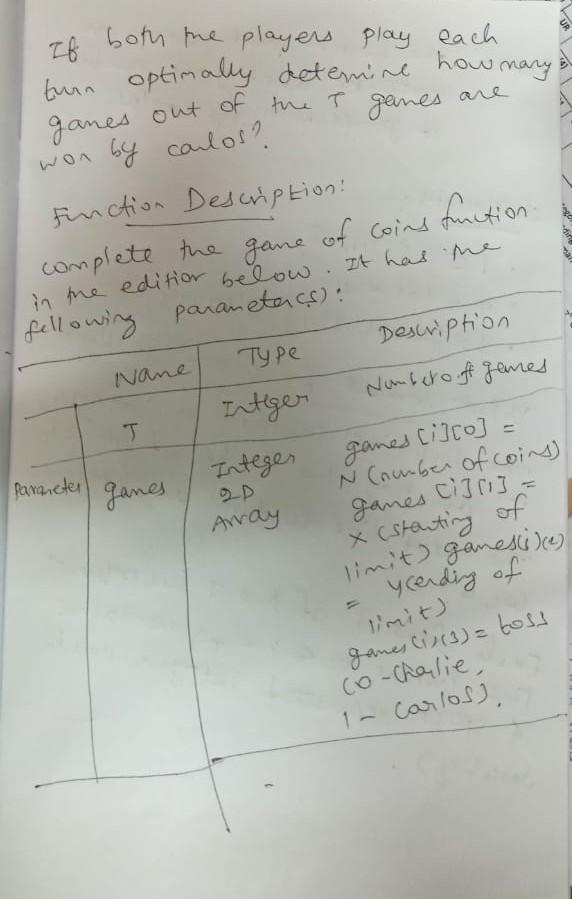 If both the players play each
turn optimally determine how many
games out of the T games are
won by carlos?
Function Description:
complete the game of coins function
in the editior below. It has the
following parameter(s):
Name Type Description
T Integer Number of games
Parameter games Integer 2D Array
games [i][0] =
N (number of coins)
games [i][1] =
x (starting of
limit) games(i)(2)
= y(ending of
limit)
games(i)(3) = toss
(0 - Charlie,
1 - Carlos).